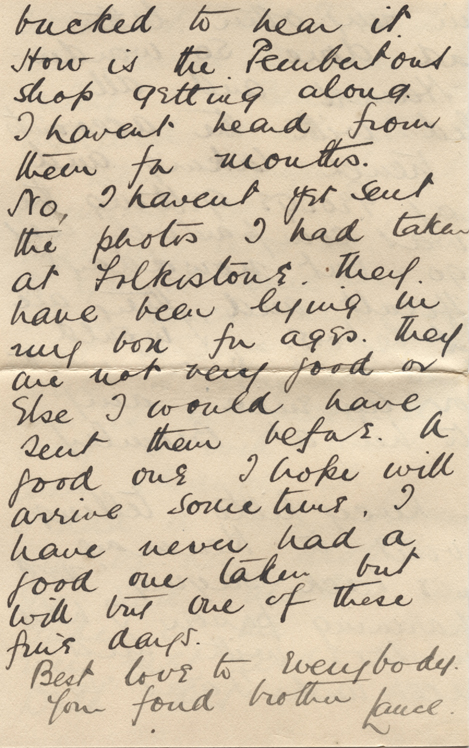 bucked to hear it.
How is the Pembertons
shop getting along.
I havent heard from
them for months.
No, I havent yet sent
the photos I had taken
at Folkestone. They
have been lying in
my box for ages. They
are not very good or
Else I would have
sent them before. A
good one I hope will
arrive sometime. I
have never had a
good one taken but
will but one of these
fine days.
Best love to Everybody.
Your fond brother Lance.